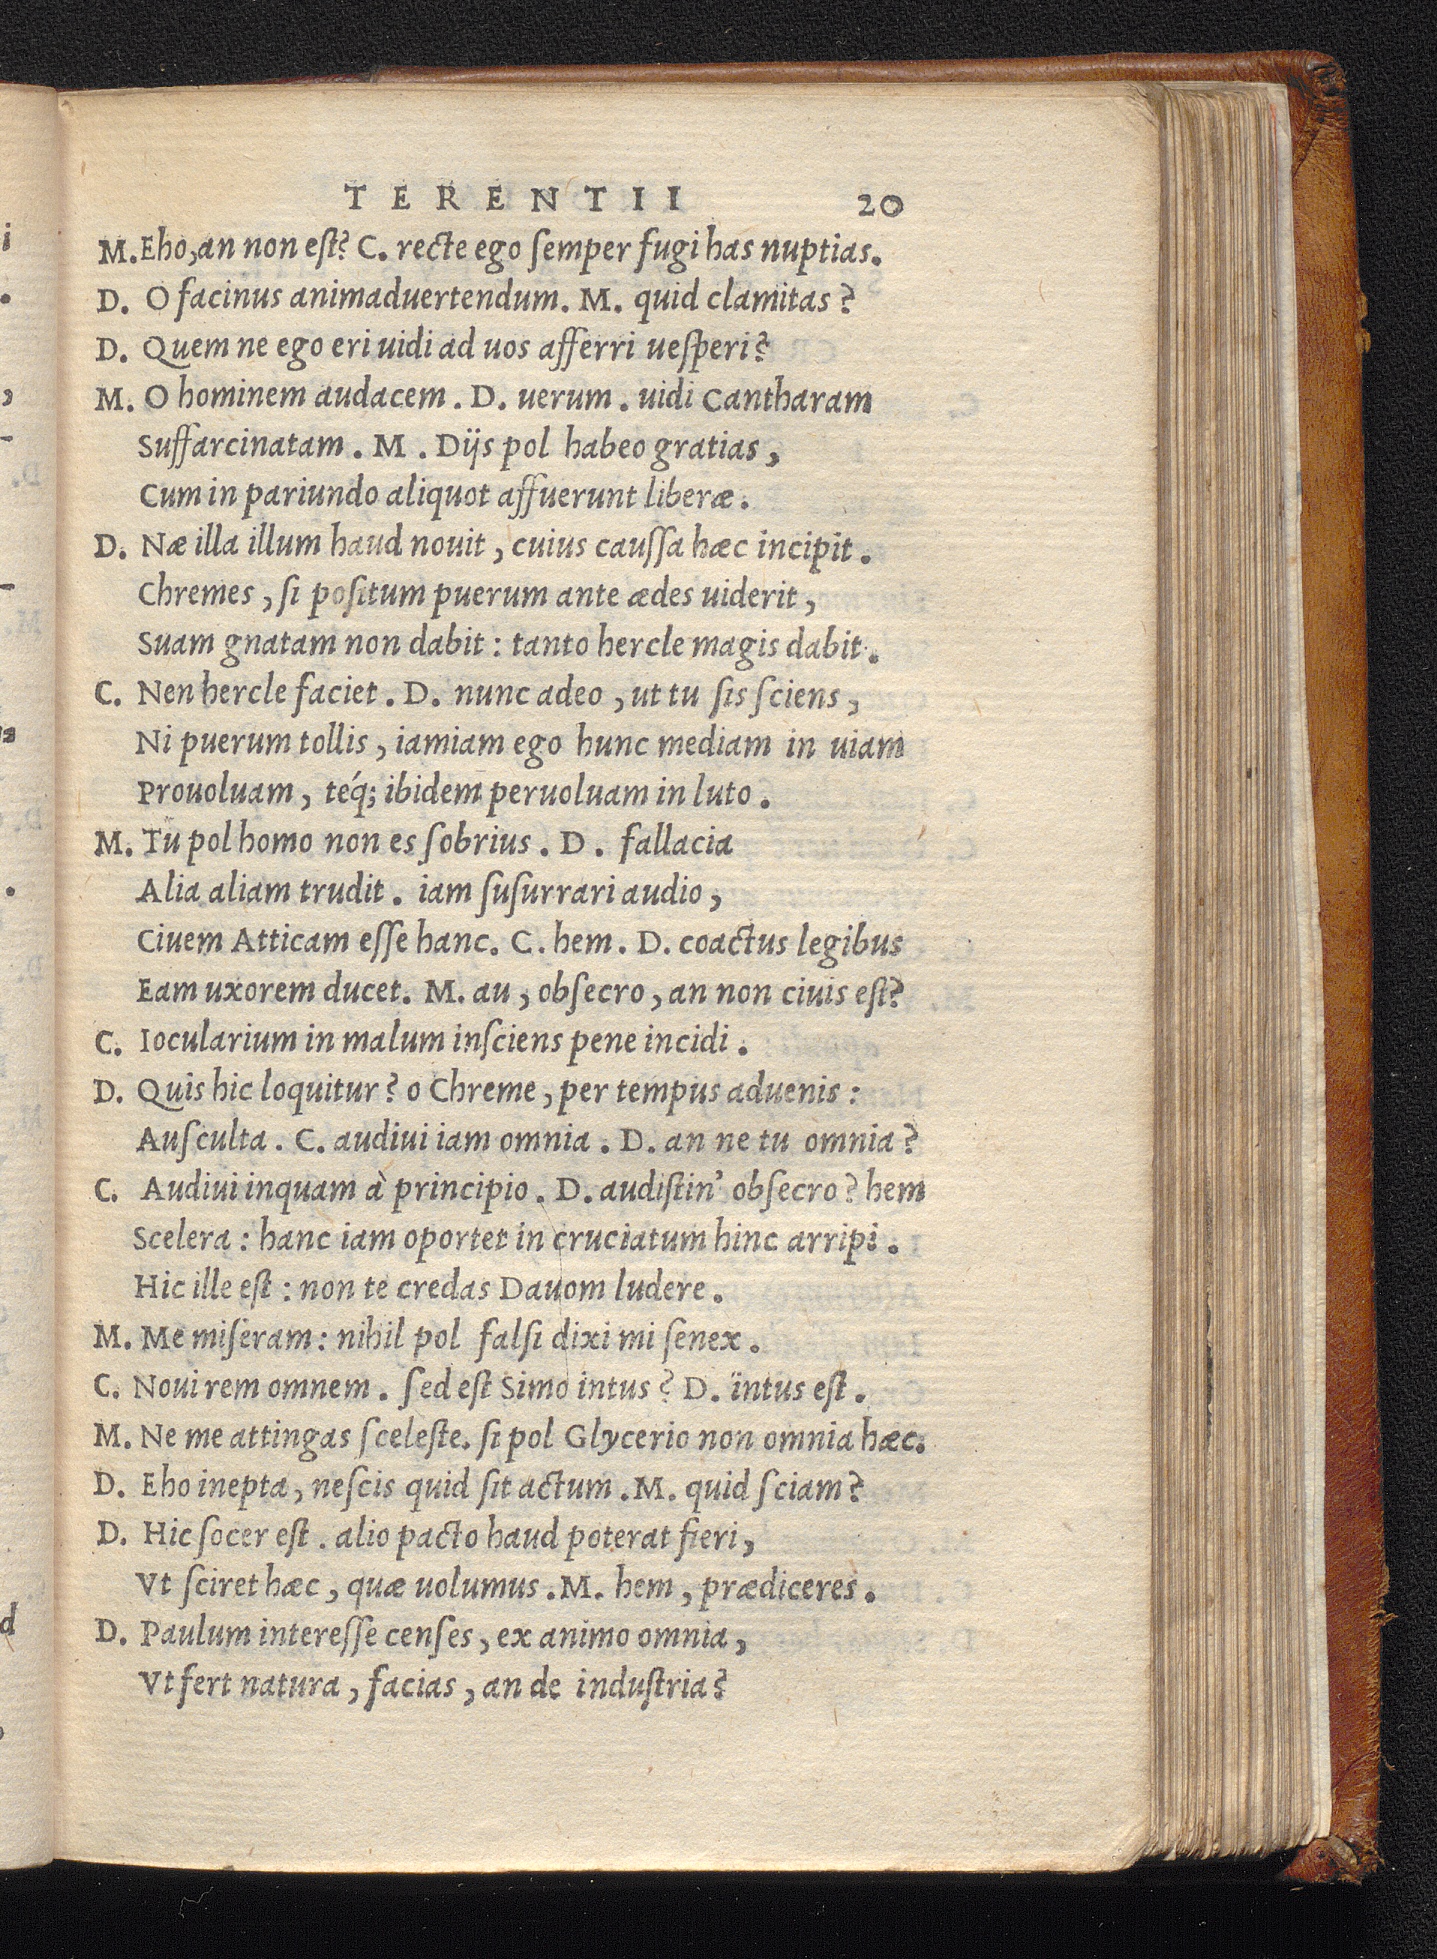 TERENTII 20
M. Eho, an non eſt? C. recte ego ſemper fugi has nuptias.
D. O facinus animaduertendum. M. quid clamitas?
D. Quem ne ego eri uidi ad uos afferri ueſperi?
M. O hominem audacem. D. uerum. uidi Cantharam
Suffarcinatam. M. Dijs pol habeo gratias,
Cum in pariundo aliquot affuerunt liberæ.
D. Næ illa illum haud nouit, cuius cauſſa hæc incipit.
Chremes, ſi poſitum puerum ante ædes uiderit,
Suam gnatam non dabit: tanto hercle magis dabit.
C. Nen hercle faciet. D. nunc adeo, ut tu ſis ſciens,
Ni puerum tollis, iamiam ego hunc mediam in uiam
Prouoluam, téq; ibidem peruoluam in luto.
M. Tu pol homo non es ſobrius. D. fallacia
Alia aliam trudit. iam ſuſurrari audio,
Ciuem Atticam eſſe hanc. C. hem. D. coactus legibus
Eam uxorem ducet. M. au, obſecro, an non ciuis eſt?
C. Iocularium in malum inſciens pene incidi.
D. Quis hic loquitur? o Chreme, per tempus aduenis:
Auſculta. C. audiui iam omnia. D. an ne tu omnia?
C. Audiui inquam à principio. D. audiſtin' obſecro? hem
Scelera: hanc iam oportet in cruciatum hinc arripi.
Hic ille eſt: non te credas Dauom ludere.
M. Me miſeram: nihil pol falſi dixi mi ſenex.
C. Noui rem omnem. ſed eſt Simo intus? D. intus eſt.
M. Ne me attingas ſceleſte. ſi pol Glycerio non omnia hæc.
D. Eho inepta, neſcis quid ſit actum. M. quid ſciam?
D. Hic ſocer eſt. alio pacto haud poterat fieri,
Vt ſciret hæc, quæ uolumus. M. hem, prædiceres.
D. Paulum intereſſe cenſes, ex animo omnia,
Vt fert natura, facias, an de induſtria?